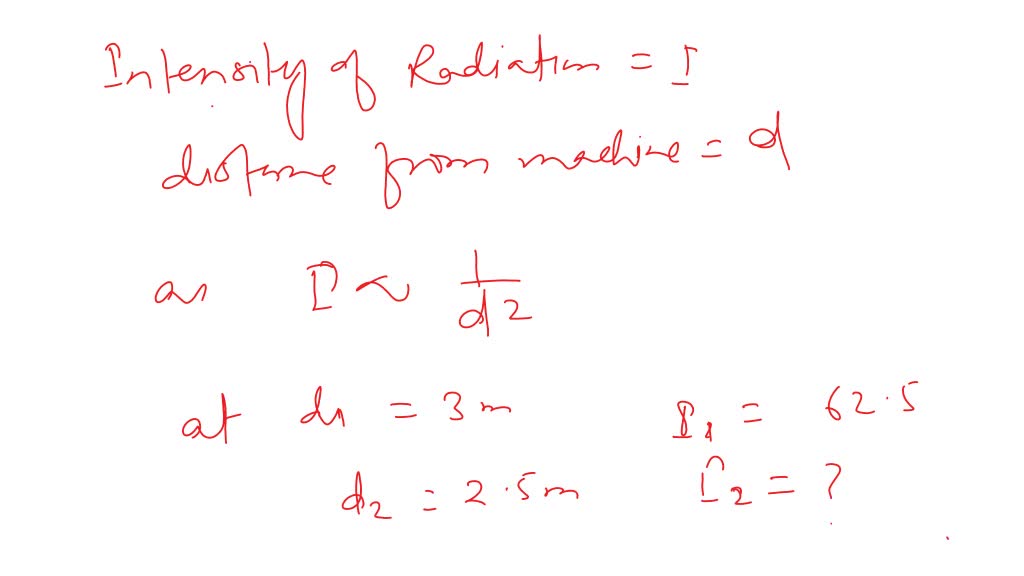 Intensity of Radiation = I
distance from machine = d
as I ∝ 1/d2
at d1 = 3m I1 = 62.5
d2 = 2.5m I2 = ?